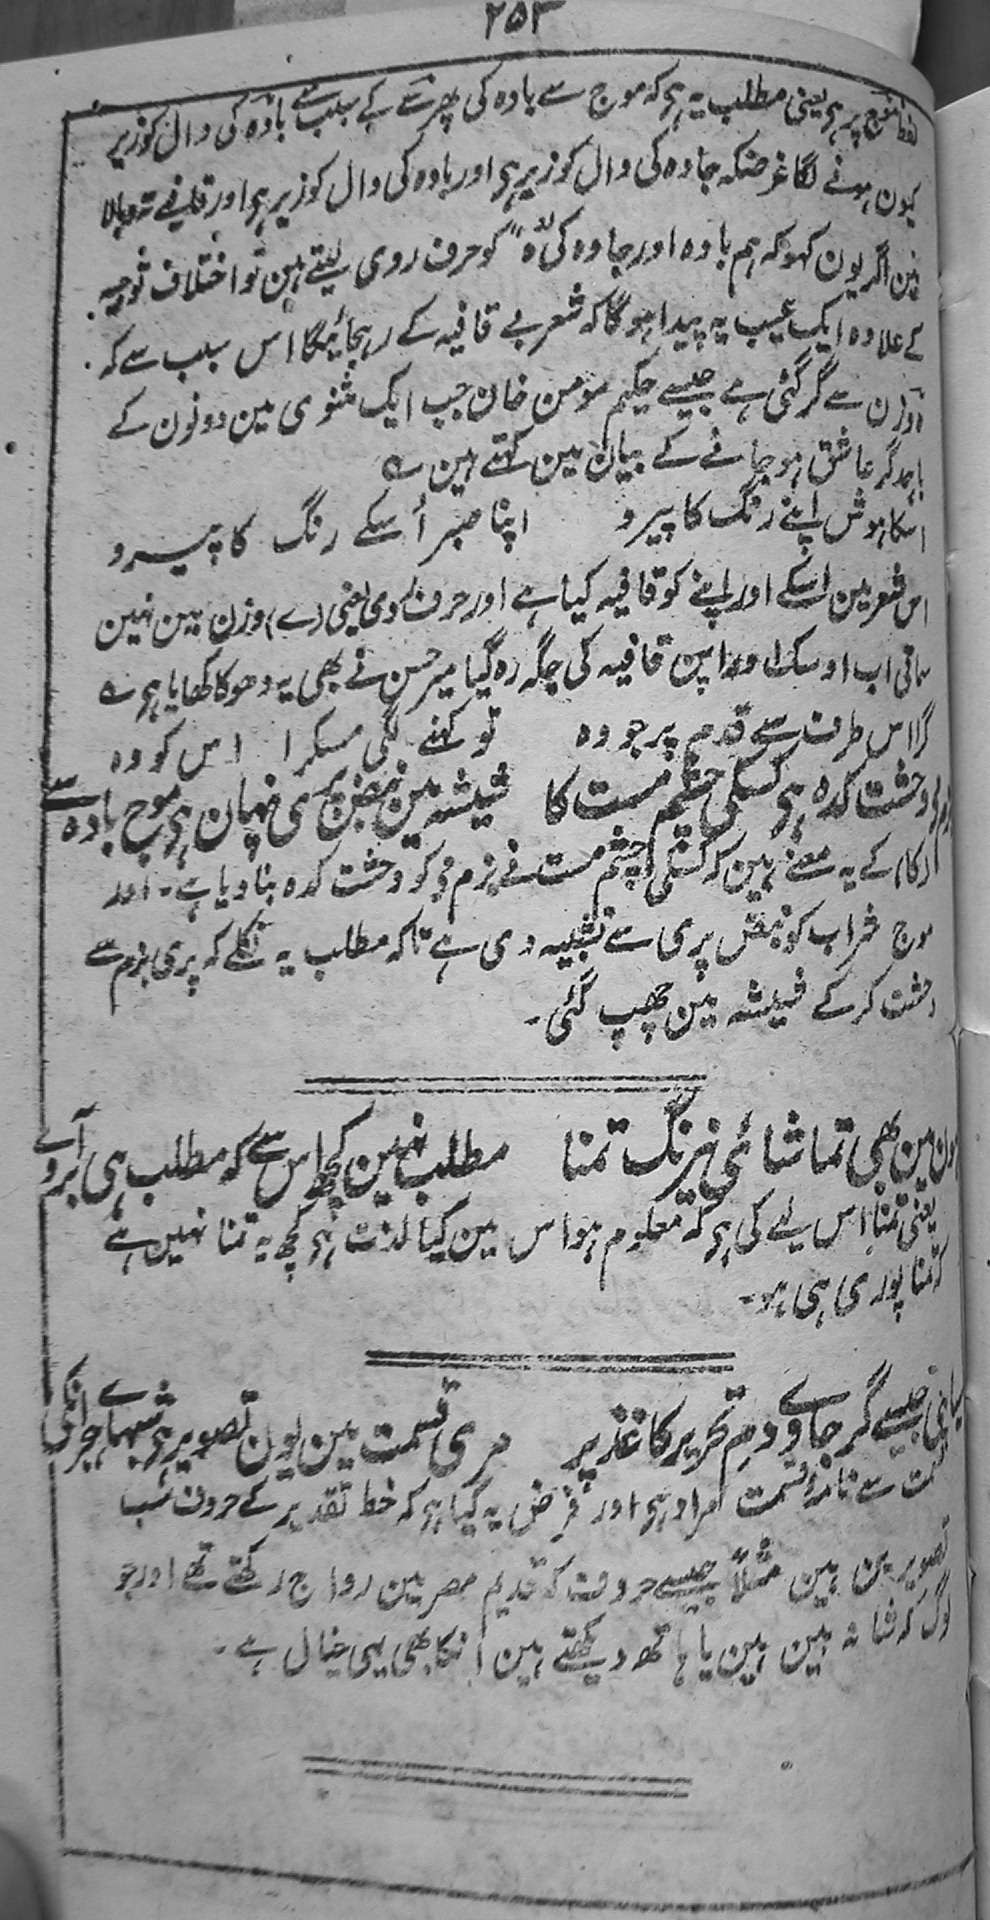 ۲۵۳
لفظ موج پر ہی یعنی مطلب یہ ہی کہ موج سے بادہ کی پھر سے کے سبب سے بادہ کی دال کو زیر
کیون ہونے لگا غرضکہ جادہ کی دال کو زبر ہی اور بادہ کی دال کو زیر ہی اور قافیے تہ و بالا
ہین اگر یون کہو کہ ہم بادہ اور جادہ کی "ہ" کو حرف روی لیتے ہین تو اختلاف توجیہ
کے علاوہ ایک عیب یہ پیدا ہوگا کہ شعر بے قافیہ کے رہجائیگا اس سبب سے کہ
ہ وزن سے گر گئی ہے جیسے حکیم مومن خان جب ایک مثنوی مین دونون کے
باہمدگر عاشق ہو جانے کے بیان مین کہتے ہین ؎
اسکا ہوش اپنے رنگ کا پیرو اپنا صبر اُسکے رنگ کا پیرو
اس شعر مین اسکے اور اپنے کو قافیہ کیا ہے اور حرف روی یعنی (ے) وزن مین نہین
سماتی اب اوسک اور اپن قافیہ کی جگہ رہ گیا میر حسن نے بھی یہ دھوکا کھایا ہی ؎
گرا اس طرف سے قدم پر جو وہ تو کہنے لگی مسکرا اس کو وہ
بزم می وحشت کدہ ہی کسکی چشم مست کا شیشہ مین نبض پری پنہان ہی موج بادہ سے
(کا) کے یہ معنے ہین کہ کسکی چشم مست نے بزم می کو وحشت کدہ بنا دیا ہے۔ اور
موج شراب کو نبض پری سے تشبیہ دی ہے تاکہ مطلب یہ نکلے کہ پری بزم سے
وحشت کر کے شیشہ مین چھپ گئی۔
ہون مین بھی تماشائی نیرنگ تمنا مطلب نہین کچھ اس سے کہ مطلب ہی بر آوے
یعنی تمنا اس لیے کی ہی کہ معلوم ہو اس مین کیا لذت ہی کچھ یہ تمنا نہین ہے
کہ تمنا پوری ہی ہو۔
سیاہی جیسے گر جاوے دم تحریر کاغذ پر مری قسمت مین یون تصویر ہی شبہاے ہجران کی
قسمت سے نامۂ قسمت مراد ہی اور فرض یہ کیا ہی کہ خط تقدیر کے حروف سب
تصویرین ہین مثلاً جیسے حروف کہ قدیم مصر مین رواج رکھتے تھے اور جو
لوگ کہ شانہ بین ہین یا ہاتھ دیکھتے ہین انکا بھی یہی خیال ہے۔